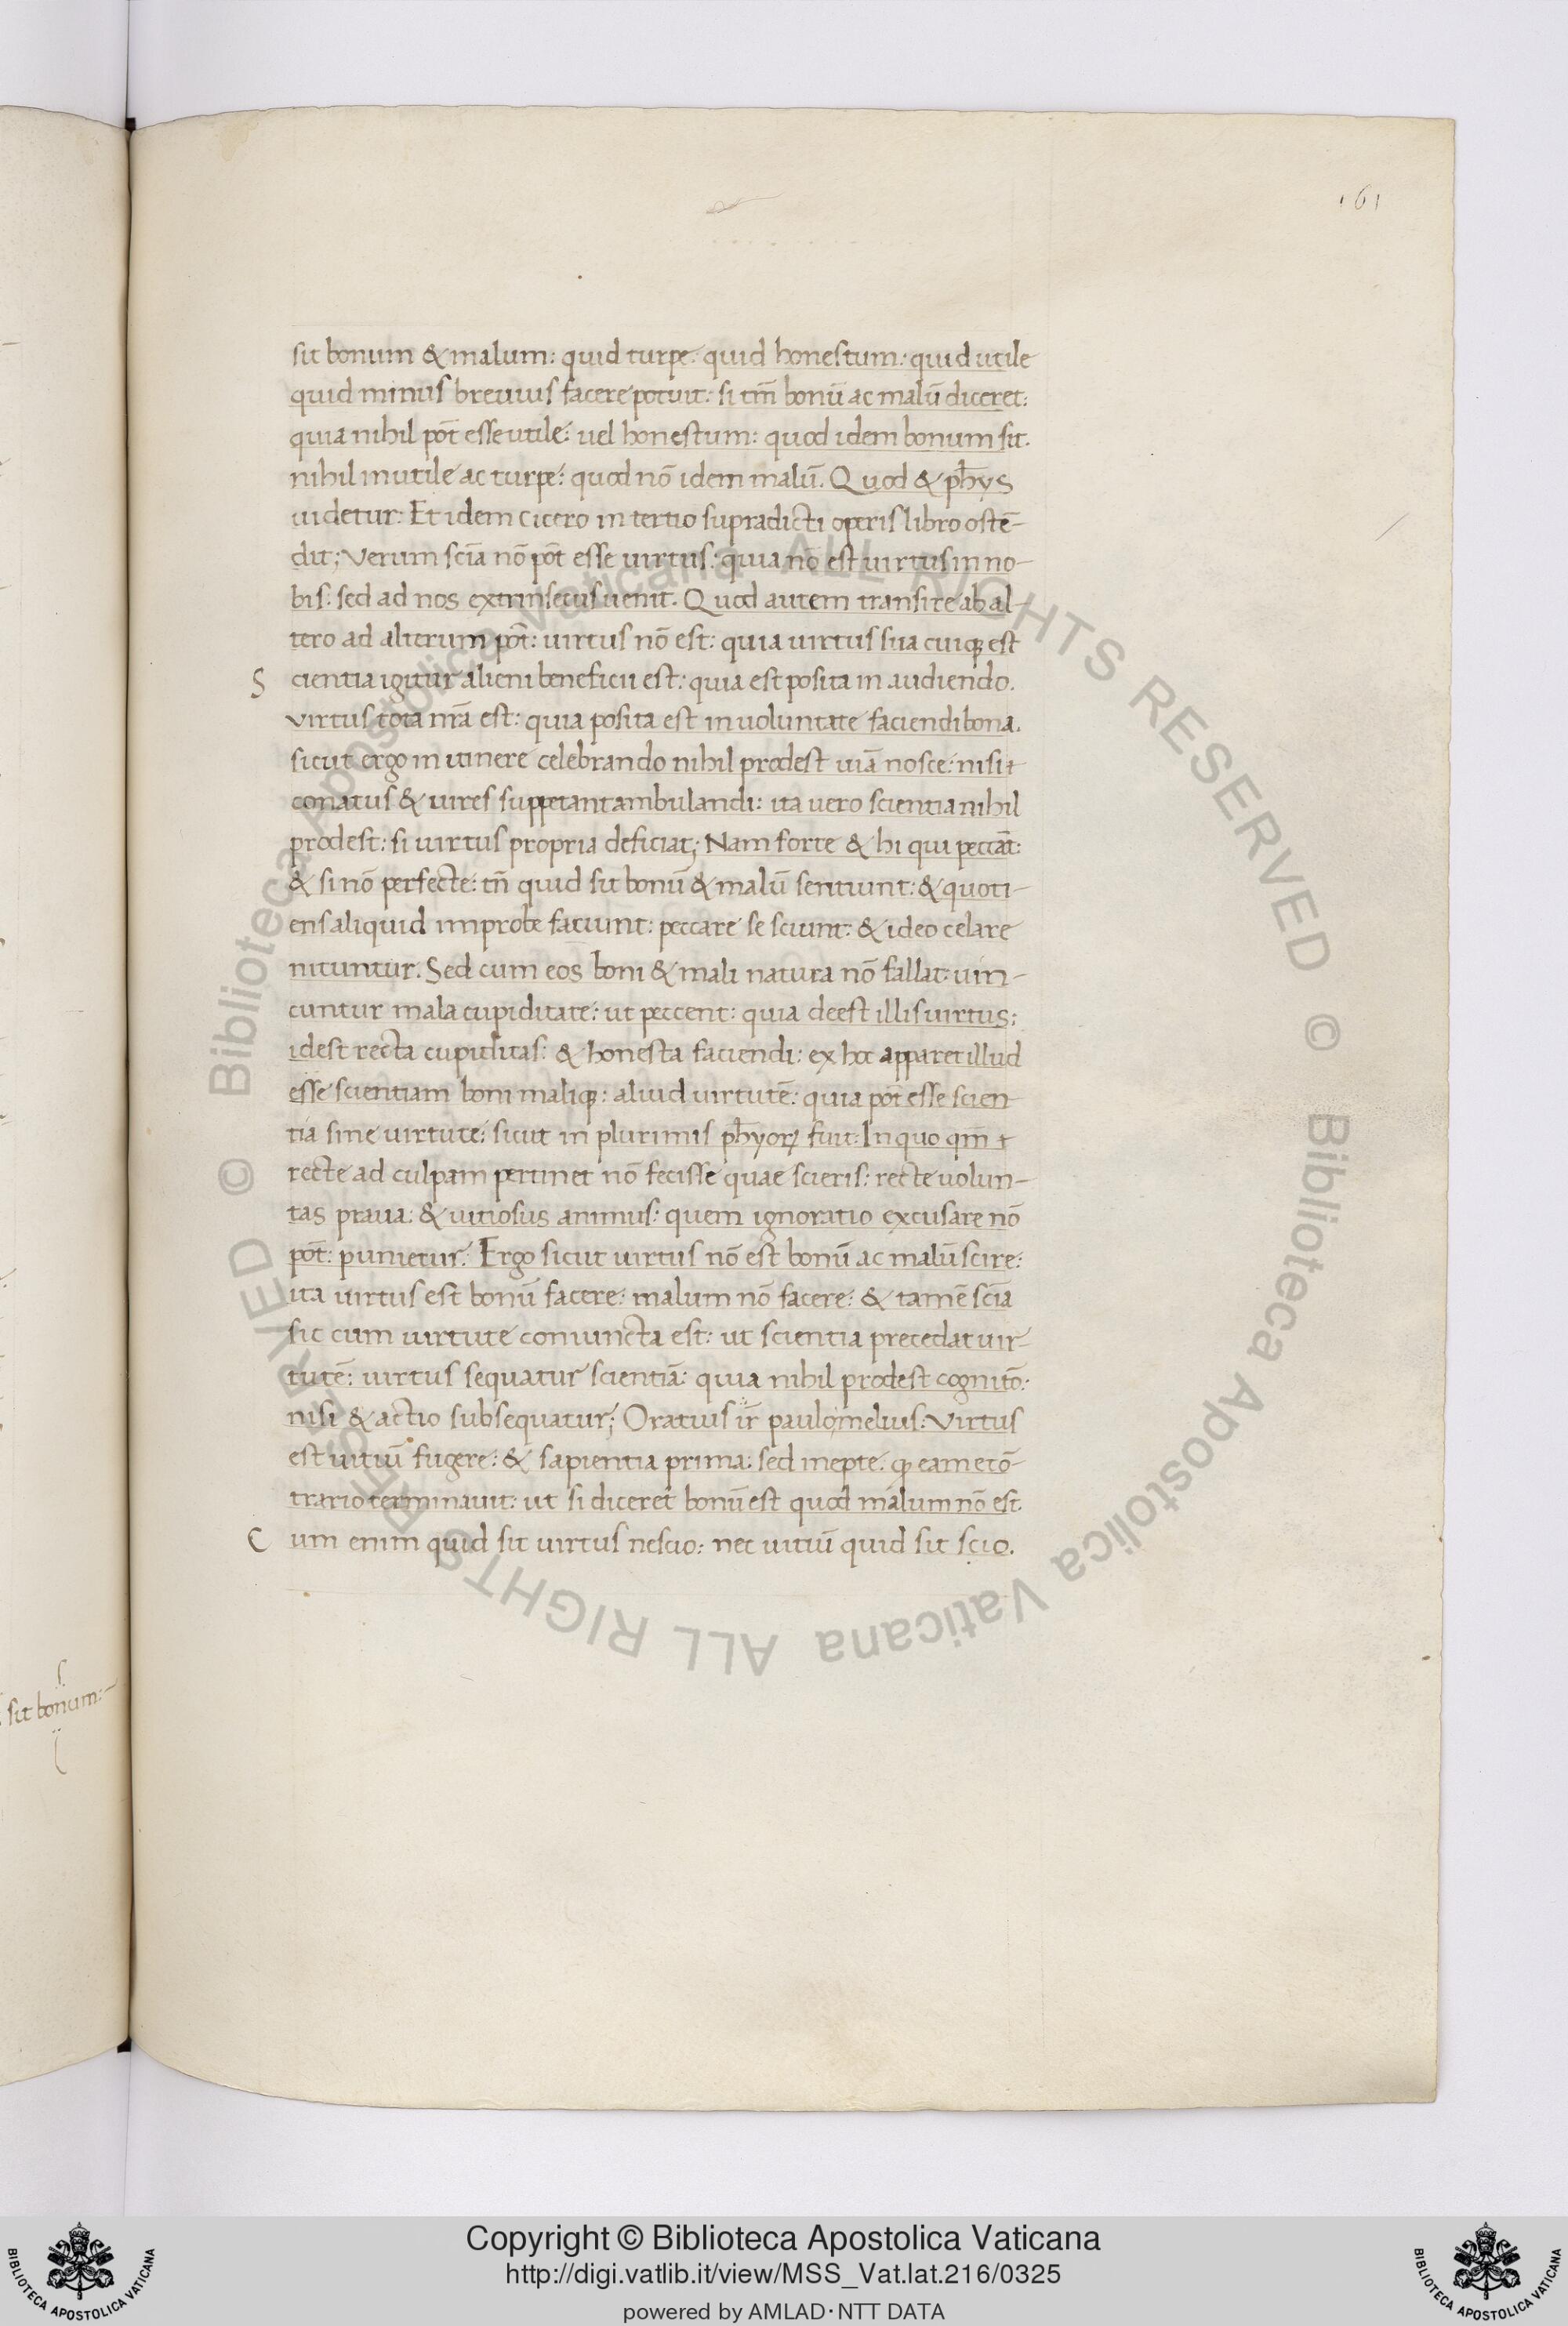 161
sit bonum & malum: quid turpe: quid honestum: quid utile
quid minus brevius facere potuit: si tm̄ bonū ac malū diceret:
quia nihil pōt esse utile: uel honestum: quod idem bonum sit.
nihil inutile ac turpe: quod nō idem malū. Quod & ph̄ys
uidetur: Et idem cicero in tertio supradicti operis libro ostē-
dit; Verum scīa nō pōt esse uirtus: quia nō est uirtus in no-
bis: sed ad nos extrinsecus uenit. Quod autem transire ab al-
tero ad alterum pōt: uirtus nō est: quia uirtus sua cuiqꝫ est
S cientia igitur alieni beneficii est: quia est posita in audiendo.
Virtus tota nr̄a est: quia posita est in uoluntate faciendi bona.
sicut ergo in itinere celebrando nihil prodest uiā nosce: nisi &
conatus & uires suppetant ambulandi: ita uero scientia nihil
prodest: si uirtus propria deficiat; Nam forte & hi qui peccāt:
& si nō perfecte: tn̄ quid sit bonū & malū sentiunt: & quoti-
ens aliquid improbe faciunt: peccare se sciunt: & ideo celare
nituntur. Sed cum eos boni & mali natura nō fallat: uin-
cuntur mala cupiditate: ut peccent: quia deest illis uirtus:
idest recta cupiditas: & honesta faciendi: ex hoc apparet illud
esse scientiam boni maliqꝫ: aliud uirtutē: quia pōt esse scien
tia sine uirtute: sicut in plurimis ph̄yoꝝ fuit: In quo qm̄ &
recte ad culpam pertinet nō fecisse quae scieris: recte uolun-
tas praua: & uitiosus animus: quem ignoratio excusare nō
pōt: punietur. Ergo sicut uirtus nō est bonū ac malū scire:
ita uirtus est bonū facere: malum nō facere: & tamē scīa
sic cum uirtute coniuncta est: ut scientia precedat uir-
tutē: uirtus sequatur scientiā: quia nihil prodest cognitō:
nisi & actio subsequatur; Oratius ir̄ paulo melius: Virtus
est uitiū fugere: & sapientia prima: sed inepte: qꝫ eam e cō-
trario terminauit: ut si diceret bonū est quod malum nō est.
C um enim quid sit uirtus nescio: nec uitiū quid sit scio.
sit bonum:-
© Biblioteca Apostolica Vaticana ALL RIGHTS RESERVED © Biblioteca Apostolica Vaticana ALL RIGHTS RESERVED
BIBLIOTECA APOSTOLICA VATICANA
Copyright © Biblioteca Apostolica Vaticana
http://digi.vatlib.it/view/MSS_Vat.lat.216/0325
powered by AMLAD·NTT DATA
BIBLIOTECA APOSTOLICA VATICANA